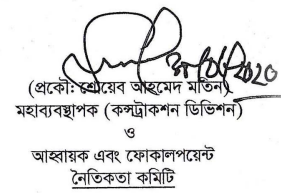 (প্রকৌ: শোয়েব আহমেদ মতিন)
মহাব্যবস্থাপক (কন্সট্রাকশন ডিভিশন)
ও
আহবায়ক এবং ফোকালপয়েন্ট
নৈতিকতা কমিটি